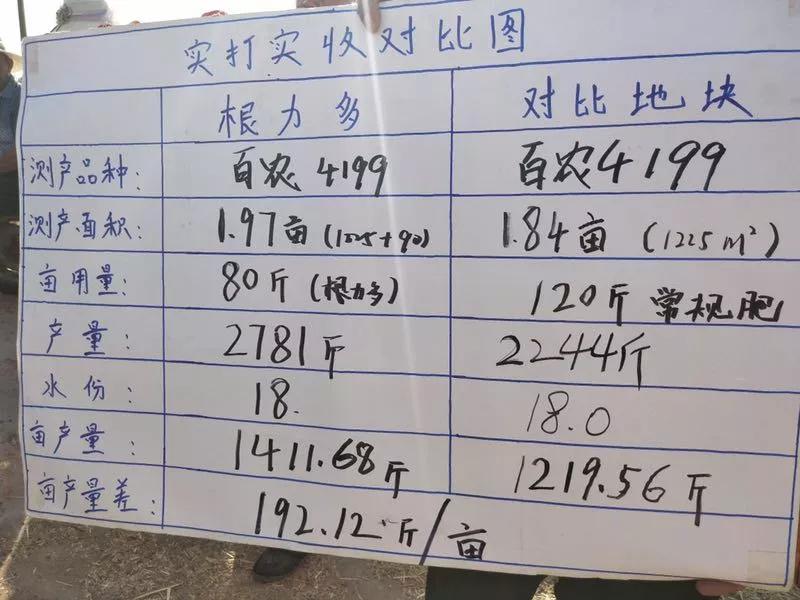 实打实收对比图
根力多 对比地块
测产品种: 百农 4199 百农4199
测产面积: 1.97亩 (1225+90) 1.84亩 (1225m²)
亩用量: 80斤 (根力多) 120斤 常规肥
产量: 2781斤 2244斤
水份: 18. 18.0
亩产量: 1411.68斤 1219.56斤
亩产量差: 192.12斤/亩